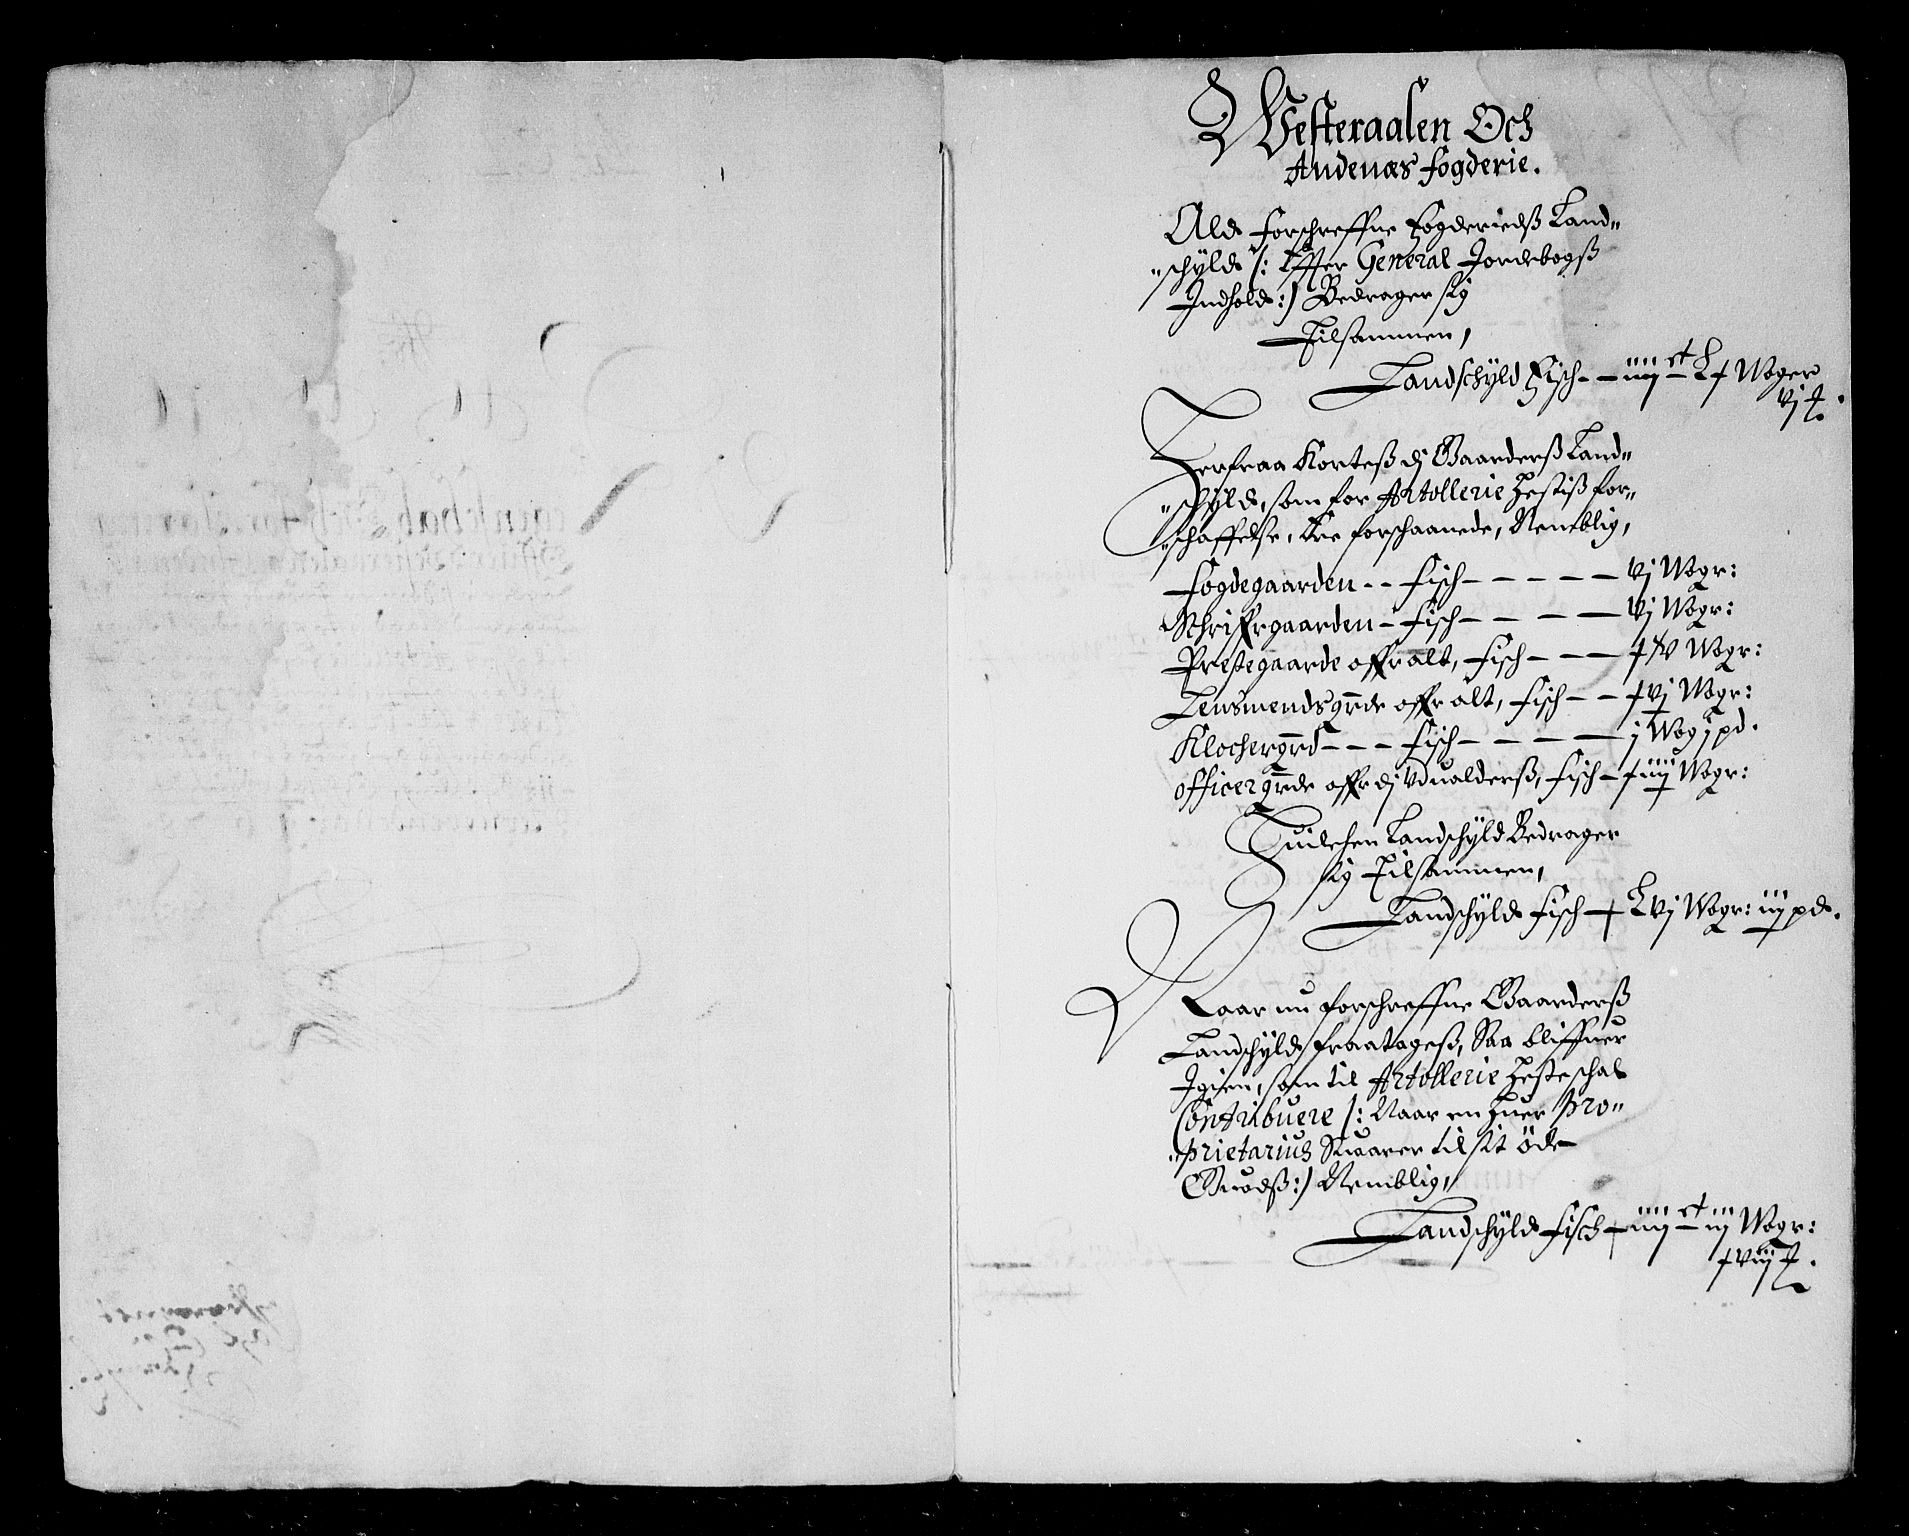 Vesteraalen Och
Andenæs fogderie.
Ald forschreffne fogderiedß Land„
„schyld /: Effter General Jordebogß
Indhold :/ Bedrager sig
Tilsammen,
Landschyld Fisch – – iiij ct L x Woger
vj
Herfraa Korteß dj Gaarderß Land„
„schyld, som for Artollerie Hestiß for„
„schaffelse, Ere forschaanede, Nemblig,
Fogdegaarden – – Fisch – – – – – vj Wogr:
Schriffrgaarden – Fisch – – – – vj Wogr:
Prestegaarde offr alt, Fisch – – – xxv Wogr:
Lensmendsgrde offr alt, Fisch – – xvj Wogr:
Klochergrd – – – Fisch – – – – – j Wog j pd.
officergrde offr dj Udualderß, Fisch – xiiij Wogr:
Huilchen Landschyld Bedrager
sig Tilsammen,
Landschyld Fisch – Lxvj Wogr: iij pd.
Naar nu forschreffne Gaarderß
Landschyld fraatageß, Saa bliffuer
Igien, som til Artollerie Heste schal
Contribuere /: Naar en huer Pro„
„prietarius Suarer til sit öde
Guodß :/ Nemblig,
Landschyld Fisch – iiij ct iij Wogr:
xviij